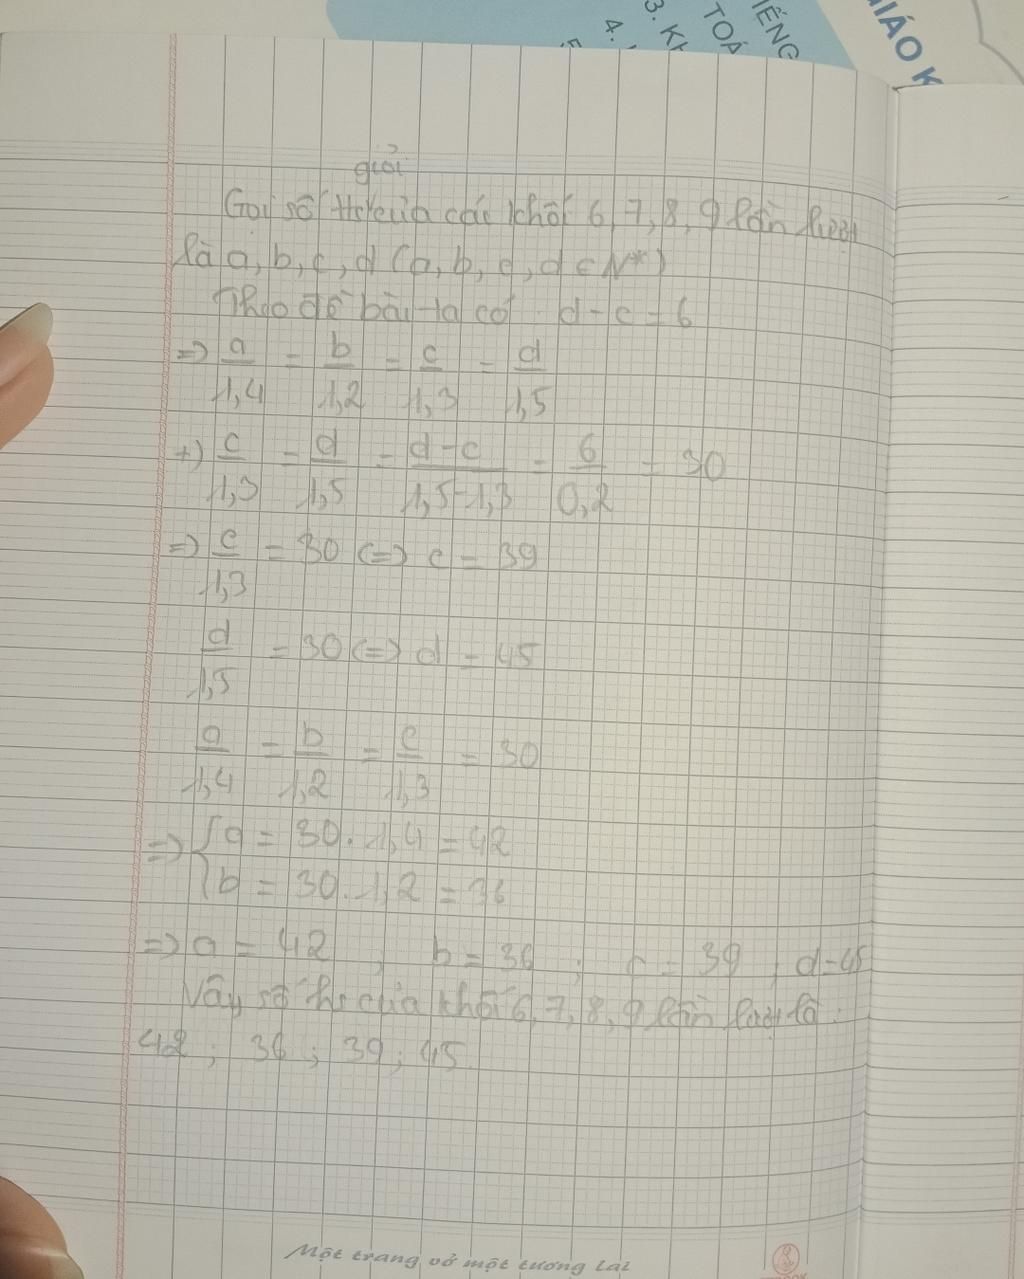 3. KH
4.
TOÁ
IẾNG
IÁO K
giải
Gọi số Hs của các khối 6, 7, 8, 9 lần lượt
là a, b, c, d (a, b, c, d ∈ N*)
Theo đề bài ta có d - c = 6
=> a/1,4 = b/1,2 = c/1,3 = d/1,5
+) c/1,3 = d/1,5 = d-c/1,5-1,3 = 6/0,2 = 30
=> c/1,3 = 30 <=> c = 39
d/1,5 = 30 <=> d = 45
a/1,4 = b/1,2 = c/1,3 = 30
=> { a = 30. 1,4 = 42
b = 30. 1,2 = 36
=> a = 42 ; b = 36 ; c = 39 ; d = 45
Vậy số hs của khối 6, 7, 8, 9 lần lượt là :
42 ; 36 ; 39 ; 45.
Một trang vở một tương lai